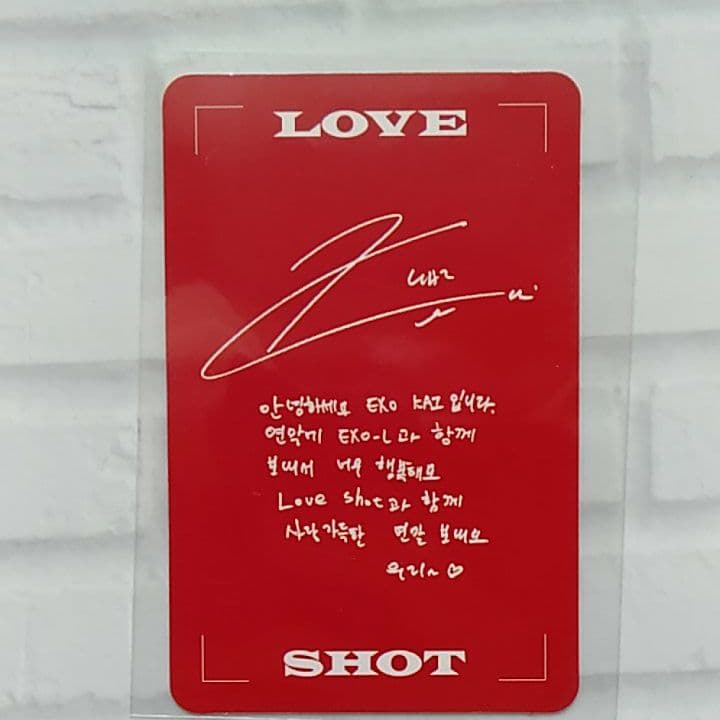 LOVE
안녕하세요 EXO KAI 입니다.
연말에 EXO-L과 함께
보내서 너무 행복해요
Love shot과 함께
사랑가득한 연말 보내요
우리~ ♡
SHOT